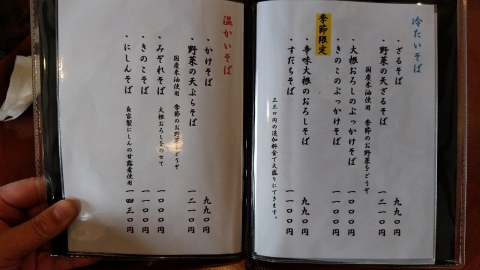 冷たいそば
・ざるそば 九九〇円
・野菜の天ざるそば 一二一〇円
国産米油使用 季節のお野菜をどうぞ
・大根おろしのぶっかけそば 一一〇〇円
・きのこのぶっかけそば 一一〇〇円
季節限定
・辛味大根のおろしそば 九九〇円
・すだちそば 一一〇〇円
三三〇円の追加料金で大盛りにできます。
温かいそば
・かけそば 九九〇円
・野菜の天ぷらそば 一二一〇円
国産米油使用 季節のお野菜をどうぞ
・みぞれそば 大根おろしをのせて 一一〇〇円
・きのこそば 一一〇〇円
・にしんそば 自家製にしんの甘露煮使用 一四三〇円